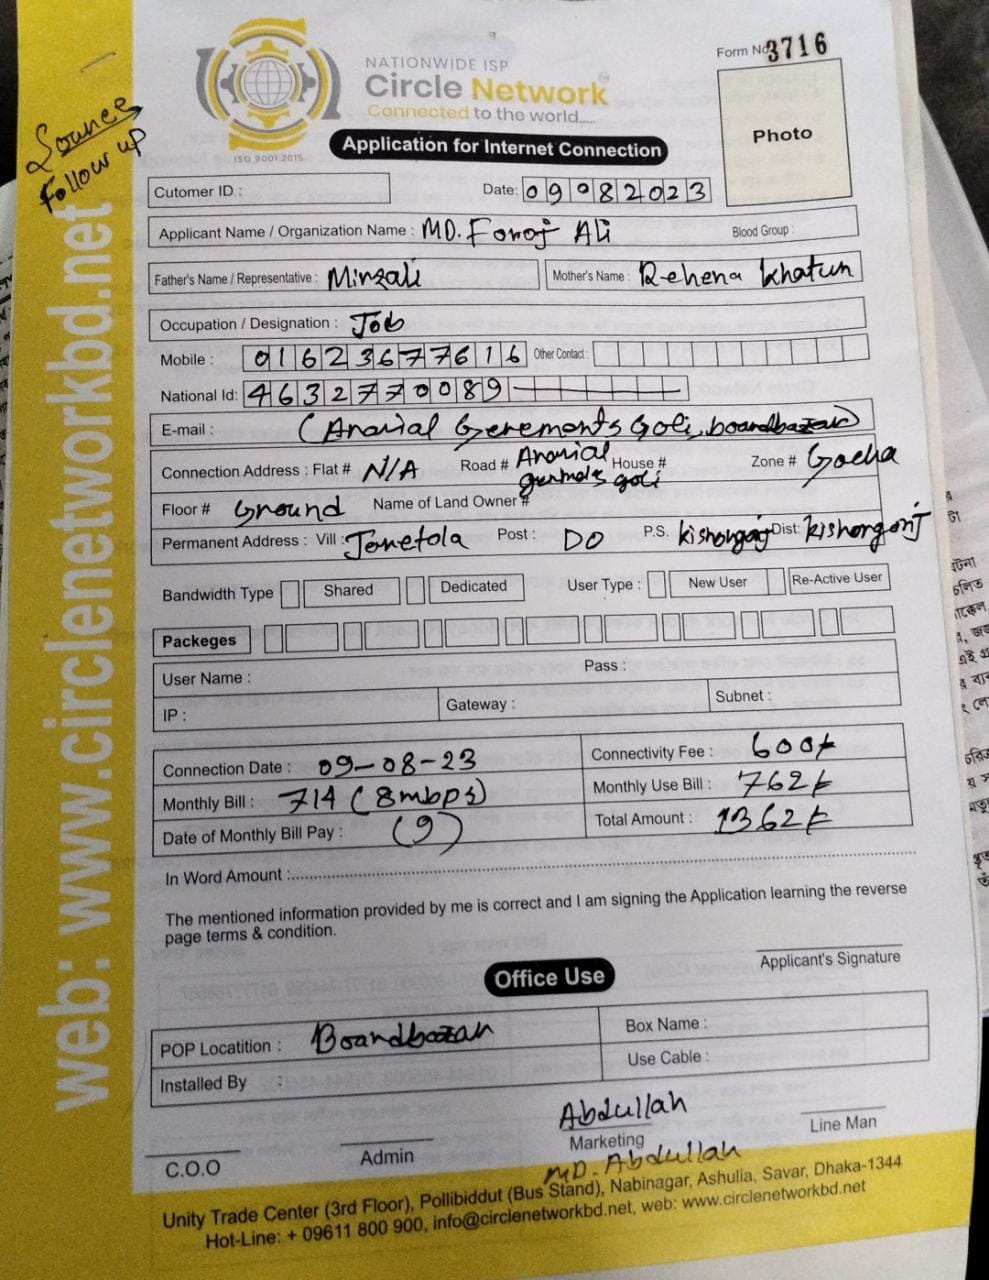 NATIONWIDE ISP
Circle Network
Connected to the world.....
ISO 9001:2015
Form No 3716
Photo
Application for Internet Connection
Sources
Follow up
web: www.circlenetworkbd.net
Cutomer ID :
Date: 09082023
Applicant Name / Organization Name : MD. Foroj Ali Blood Group :
Father's Name / Representative : Mirzali Mother's Name : Rehena Khatun
Occupation / Designation : Job
Mobile : 01623677616 Other Contact :
National Id: 4632770089
E-mail : (Anarial Gerements Goli, boardbazar)
Connection Address : Flat # N/A Road # Anarial garmets goli House # Zone # Gacha
Floor # Ground Name of Land Owner #
Permanent Address : Vill : Jometola Post : DO P.S. kishorgonj Dist: kishorgonj
Bandwidth Type Shared Dedicated User Type : New User Re-Active User
Packeges
User Name : Pass :
IP : Gateway : Subnet :
Connection Date : 09-08-23 Connectivity Fee : 600/-
Monthly Bill : 714 (8mbps) Monthly Use Bill : 762/-
Date of Monthly Bill Pay : (9) Total Amount : 1362/-
In Word Amount :
The mentioned information provided by me is correct and I am signing the Application learning the reverse
page terms & condition.
Applicant's Signature
Office Use
POP Locatition : Boardbazar Box Name :
Installed By : Use Cable :
Abdullah
C.O.O Admin Marketing Line Man
MD. Abdullah
Unity Trade Center (3rd Floor), Pollibiddut (Bus Stand), Nabinagar, Ashulia, Savar, Dhaka-1344
Hot-Line: + 09611 800 900, info@circlenetworkbd.net, web: www.circlenetworkbd.net